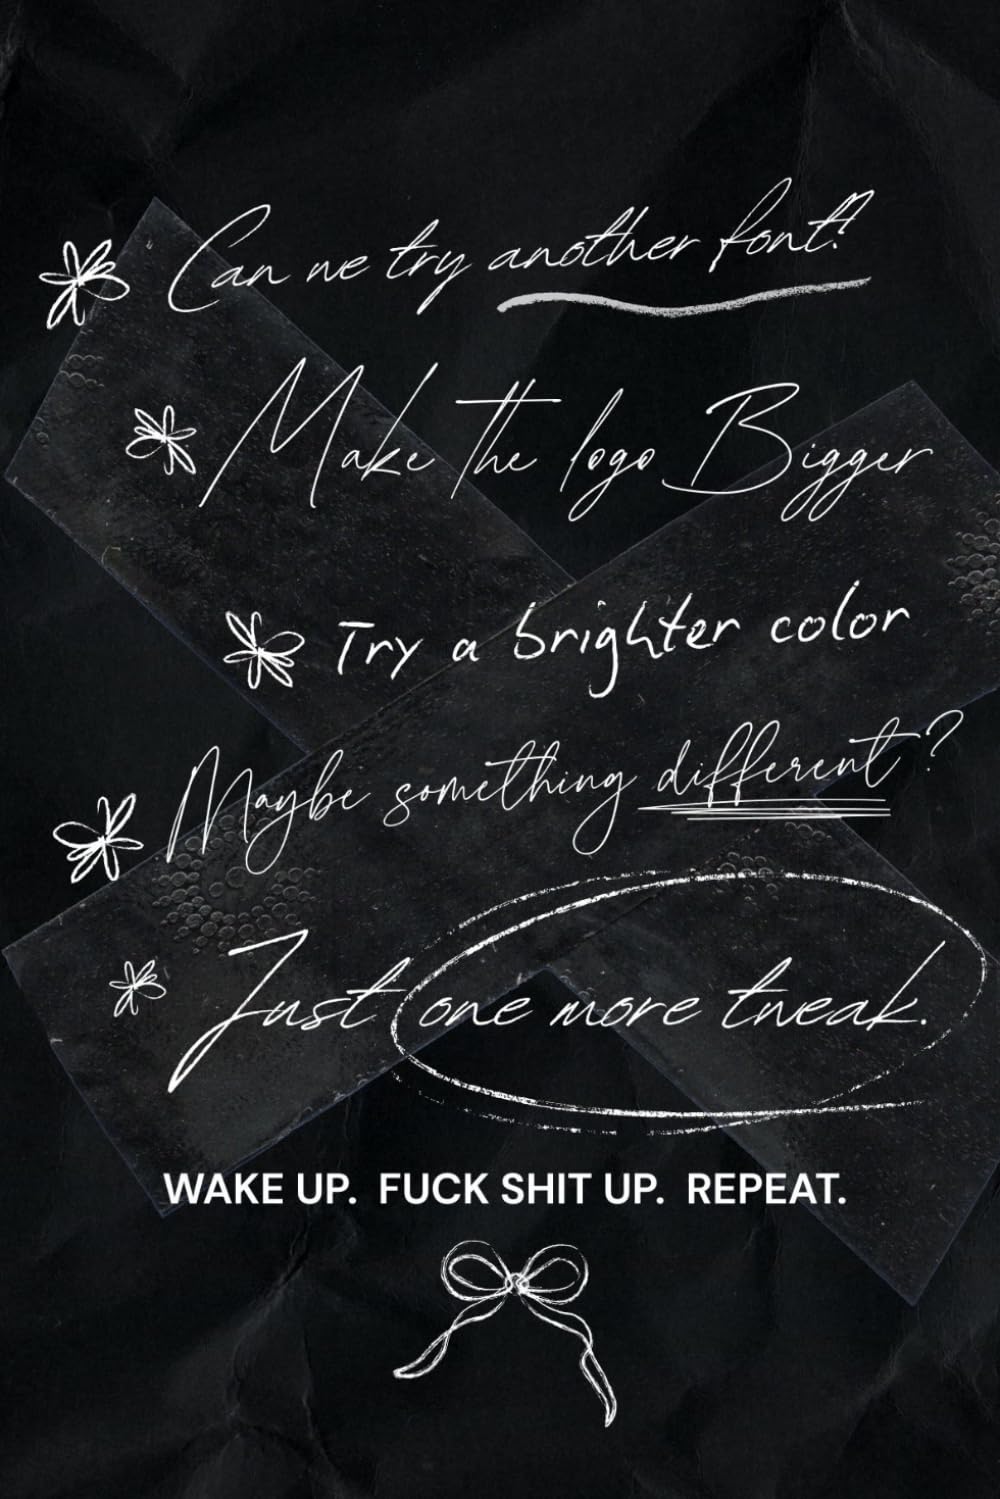 Can we try another font?
Make the logo Bigger
Try a brighter color
Maybe something different?
Just one more tweak.
WAKE UP. FUCK SHIT UP. REPEAT.